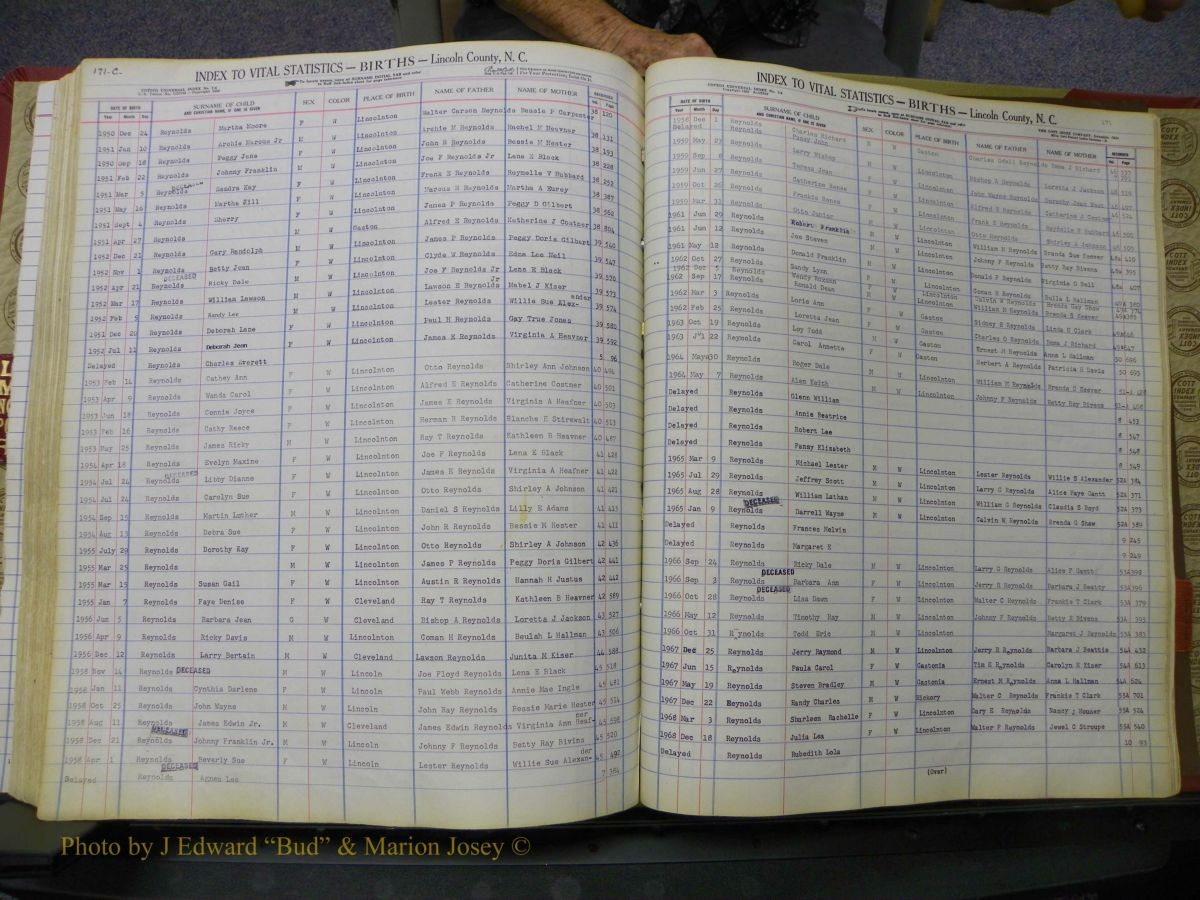 171-C
INDEX TO VITAL STATISTICS — BIRTHS — Lincoln County, N. C.
DATE OF BIRTH SURNAME OF CHILD SEX COLOR PLACE OF BIRTH NAME OF FATHER NAME OF MOTHER
Year Month Day AND CHRISTIAN NAME, IF ONE IS GIVEN Vol. Page
1950 Dec 24 Reynolds Martha Moore F W Lincolnton Walter Carson Reynolds Bessie P Carpenter 38 120
1951 Jan 10 Reynolds Archie Marcus Jr Lincolnton Archie M Reynolds Rachel M Heavner 38 131
1950 Sep 18 Reynolds Peggy Jena Lincolnton John R Reynolds Bessie M Hester 38 193
1951 Feb 22 Reynolds Johnny Franklin W Lincolnton Joe F Reynolds Jr Lena E Black 38 228
1951 Mar 5 Reynolds DECEASED Sandra Kay W Lincolnton Frank E Reynolds Raymelle Y Hubbard 38 252
1951 May 16 Reynolds Martha Jill W Lincolnton Marcus R Reynolds Martha A Hurey 38 387
1951 Sept 4 Reynolds Sherry W Gaston James P Reynolds Peggy D Gilbert 38 562
1951 Apr 27 Reynolds M W Lincolnton Alfred E Reynolds Katherine J Costner 38 804
1952 Dec 21 Reynolds Gary Randolph M W Lincolnton James P Reynolds Peggy Doris Gilbert 39 540
1952 Nov 1 Reynolds Betty Jean W Lincolnton Clyde W Reynolds Edna Lee Neil 39 547
DECEASED
1952 Apr 21 Reynolds Ricky Dale M W Lincolnton Joe F Reynolds Jr Lena E Black 39 570
1952 Mar 17 Reynolds William Lawson M W Lincolnton Lawson E Reynolds Jr Mabel J Kiser 39 573
1952 Feb 5 Reynolds Randy Lee M W Lincolnton Lester Reynolds Willie Sue Alexander 39 574
1951 Dec 20 Reynolds Deborah Lane F W Lincolnton Paul H Reynolds Gay True Jones 39 580
1952 Jul 11 Reynolds Deborah Jean F W Lincolnton James E Reynolds Virginia A Heavner 39 592
Delayed Reynolds Charles Everett 5 96
1953 Feb 14 Reynolds Cathey Ann F W Lincolnton Otto Reynolds Shirley Ann Johnson 40 494
1953 Apr 9 Reynolds Wanda Carol F W Lincolnton Alfred E Reynolds Catherine Costner 40 501
1953 Jun 18 Reynolds Connie Jayce F W Lincolnton James E Reynolds Virginia A Heafner 40 503
1953 Feb 16 Reynolds Cathy Reece F W Lincolnton Herman R Reynolds Blanche E Stirewalt 40 513
1953 May 25 Reynolds James Ricky M W Lincolnton Ray T Reynolds Kathleen B Heavner 40 487
1954 Apr 18 Reynolds Evelyn Maxine F W Lincolnton Joe F Reynolds Lena E Black 41 428
DECEASED
1954 Jul 24 Reynolds Libby Dianne F W Lincolnton James E Reynolds Virginia A Heafner 41 422
1954 Jul 24 Reynolds Carolyn Sue F W Lincolnton Otto Reynolds Shirley A Johnson 41 421
1954 Sep 15 Reynolds Martin Luther M W Lincolnton Daniel S Reynolds Lilly E Adams 41 415
1954 Aug 13 Reynolds Debra Sue F W Lincolnton John R Reynolds Bessie M Hester 41 411
1955 July 29 Reynolds Dorothy Kay F W Lincolnton Otto Reynolds Shirley A Johnson 42 436
1955 Mar 25 Reynolds M W Lincolnton James P Reynolds Peggy Doris Gilbert 42 441
1955 Mar 15 Reynolds Susan Gail F W Lincolnton Austin R Reynolds Hannah H Justus 42 442
1955 Jan 7 Reynolds Faye Denise F W Cleveland Ray T Reynolds Kathleen B Heavner 42 589
1956 Jun 5 Reynolds Barbara Jean G W Cleveland Bishop A Reynolds Loretta J Jackson 43 527
1956 Apr 9 Reynolds Ricky Davis M W Lincolnton Coman H Reynolds Beulah L Hallman 43 506
1956 Dec 12 Reynolds Larry Bertain M W Cleveland Lawson Reynolds Junita M Kiser 44 588
1958 Nov 14 Reynolds DECEASED M W Lincoln Joe Floyd Reynolds Lena E Black 45 518
1958 Jan 11 Reynolds Cynthia Darlene F W Lincoln Paul Webb Reynolds Annie Mae Ingle 45 481
1958 Oct 25 Reynolds John Wayne M W Lincoln John Ray Reynolds Bessie Marie Hester 45 514
1958 Aug 11 Reynolds James Edwin Jr. M W Cleveland James Edwin Reynolds Virginia Ann Heafner 45 598
DECEASED
1958 Dec 21 Reynolds Johnny Franklin Jr. M W Lincoln Johnny F Reynolds Betty Ray Bivins 45 520
1958 Apr 1 Reynolds Beverly Sue F W Lincoln Lester Reynolds Willie Sue Alexander 45 492
DECEASED
Delayed Reynolds Agnes Lee 7 384
171
INDEX TO VITAL STATISTICS — BIRTHS — Lincoln County, N. C.
DATE OF BIRTH SURNAME OF CHILD SEX COLOR PLACE OF BIRTH NAME OF FATHER NAME OF MOTHER
Year Month Day AND CHRISTIAN NAME, IF ONE IS GIVEN
1958 Dec 1 Reynolds Charles Richard W Gaston Charles Odell Reynolds Emma J Richard
Delayed Reynolds Pansy John
1959 May 27 Reynolds Larry Bishop Lincolnton Bishop A Reynolds Loretta J Jackson
1959 Sep 8 Reynolds Teresa Jean Lincolnton John Wayne Reynolds Dorothy Jean West
1959 Jun 27 Reynolds Catherine Renee Lincolnton Alfred E Reynolds Catherine J Costner
1959 Oct 26 Reynolds Frankie Renee Lincolnton Frank E Reynolds
1959 Mar 31 Reynolds Otto Junior Lincolnton Otto Reynolds Shirley A Johnson
1961 Jun 29 Reynolds Robert Franklin W Lincolnton William H Reynolds Brenda Sue Keever
1961 Jun 12 Reynolds Joe Steven W Lincolnton Johnny F Reynolds Betty Ray Bivens 395
1961 May 12 Reynolds Donald Franklin W Lincolnton Donald F Reynolds Virginia G Bell 407
1962 Oct 27 Reynolds Sandy Lynn W Lincolnton Coman H Reynolds Bulla L Hallman
1962 Dec 5 Reynolds Wendy Rozann W Lincolnton Calvin W Reynolds Brenda Gay Shaw
1962 Sep 17 Reynolds Ronald Dean W Lincolnton William H Reynolds Brenda S Keever
1962 Mar 3 Reynolds Loria Ann F W Gaston Sidney B Reynolds Linda E Clark
1962 Feb 25 Reynolds Loretta Jean F W Gaston Charles O Reynolds Emma J Richard
1963 Oct 19 Reynolds Loy Todd W Lincolnton Ernest M Reynolds Anna L Hallman 50 696
1963 Jul 22 Reynolds Carol Annette F W Gaston Herbert A Reynolds Patricia H Davis 50 695
1964 May 30 Reynolds Roger Dale M W Lincolnton William M Reynolds Brenda S Keever
1964 May 7 Reynolds Alan Keith M W Lincolnton Johnny F Reynolds Betty Ray Bivens
Delayed Reynolds Glenn William 8 453
Delayed Reynolds Annie Beatrice
Delayed Reynolds Robert Lee 8 547
Delayed Reynolds Pansy Elizabeth 8 548
8 549
1965 Mar 9 Reynolds Michael Lester M W Lincolnton Lester Reynolds Willie S Alexander 52A 384
1965 Jul 29 Reynolds Jeffrey Scott M W Lincolnton Larry G Reynolds Alice Kaye Gantt 52A 371
1965 Aug 28 Reynolds William Lathan M W Lincolnton William G Reynolds Claudia S Boyd 52A 373
DECEASED
1965 Jan 9 Reynolds Darrell Wayne M W Lincolnton Calvin W Reynolds Brenda G Shaw 52A 389
Delayed Reynolds Frances Melvin 9 245
Delayed Reynolds Margaret E 9 249
1966 Sep 24 Reynolds Ricky Dale M W Lincolnton Larry G Reynolds Alice F Gantt 53A 398
DECEASED
1966 Sep 3 Reynolds Barbara Ann F W Lincolnton Jerry R Reynolds Barbara J Beatty 53A 396
DECEASED
1966 Oct 28 Reynolds Lisa Dawn F W Lincolnton Walter C Reynolds Frankie T Clark 53A 379
1966 May 12 Reynolds Timothy Ray M W Lincolnton Johnny F Reynolds Betty R Bivens 53A 395
1966 Oct 31 Reynolds Todd Eric M W Lincolnton Margaret J Reynolds 53A 383
1967 Dec 25 Reynolds Jerry Raymond M W Lincolnton Jerry R Reynolds Barbara J Beattie 54A 432
1967 Jun 15 Reynolds Paula Carol F W Gastonia Tim H Reynolds Carolyn K Kiser 54A 613
1967 May 19 Reynolds Steven Bradley M W Gastonia Ernest M Reynolds Anna L Hallman 54A 524
1967 Dec 22 Reynolds Randy Charles M W Hickory Walter C Reynolds Frankie T Clark 55A 701
1968 Mar 3 Reynolds Sharleen Rachelle F W Lincolnton Gary E Reynolds Nancy J Houser 55A 524
1968 Dec 18 Reynolds Julia Lea F W Lincolnton Walter P Reynolds Jewel C Stroupe 55A 540
Delayed Reynolds Rubedith Lola 10 93
(Over)
COTT INDEX
Photo by J Edward “Bud” & Marion Josey ©